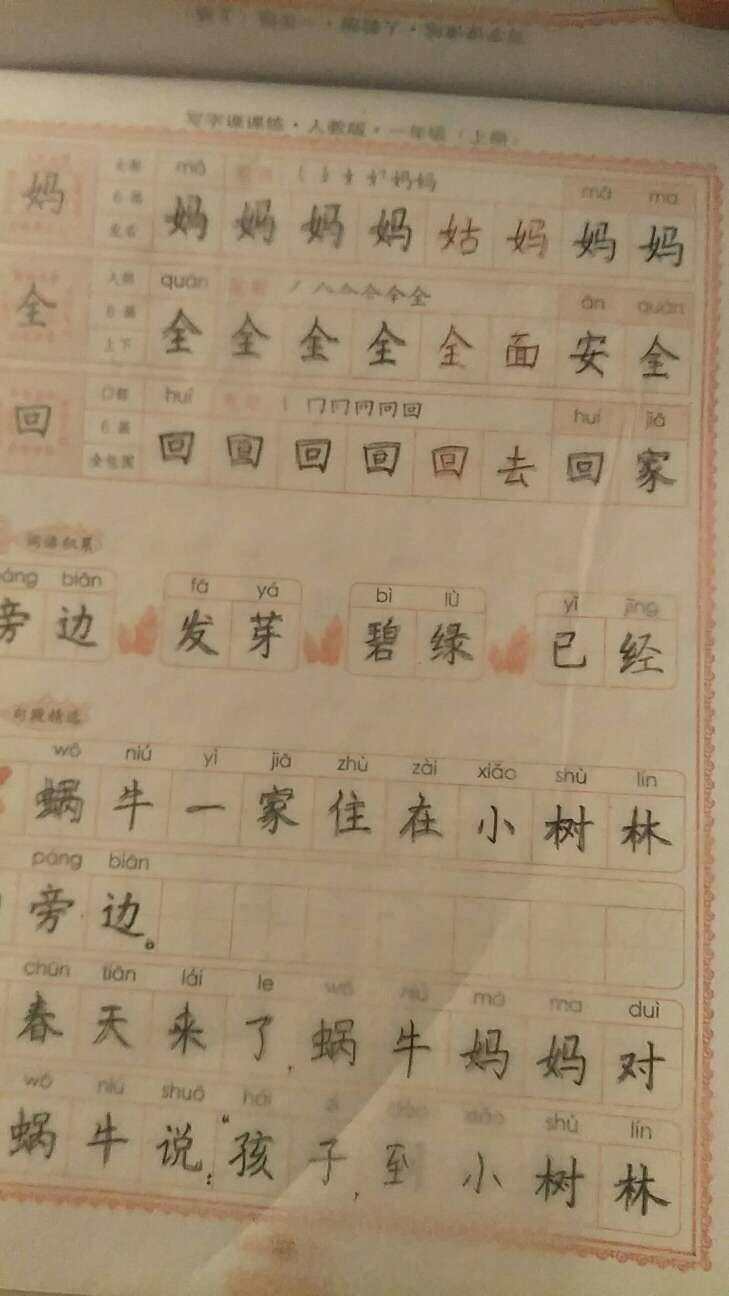 写字课课练·人教版·一年级（上册）
妈 女部 mā 妈妈
6画 mā ma
左右 妈 妈 妈 妈 姑 妈 妈 妈
全 人部 quán 全
6画 ān quán
上下 全 全 全 全 全 面 安 全
回 口部 huí 冂冂冋冋回
6画 huí jiā
全包围 回 回 回 回 回 去 回 家
词语积累
páng biān fā yá bì lǜ yǐ jīng
旁 边 发 芽 碧 绿 已 经
句段精选
wō niú yì jiā zhù zài xiǎo shù lín
蜗 牛 一 家 住 在 小 树 林
páng biān
旁 边。
chūn tiān lái le wō niú mā ma duì
春 天 来 了，蜗 牛 妈 妈 对
wō niú shuō hái xiǎo shù lín
蜗 牛 说：“孩 子，至 小 树 林